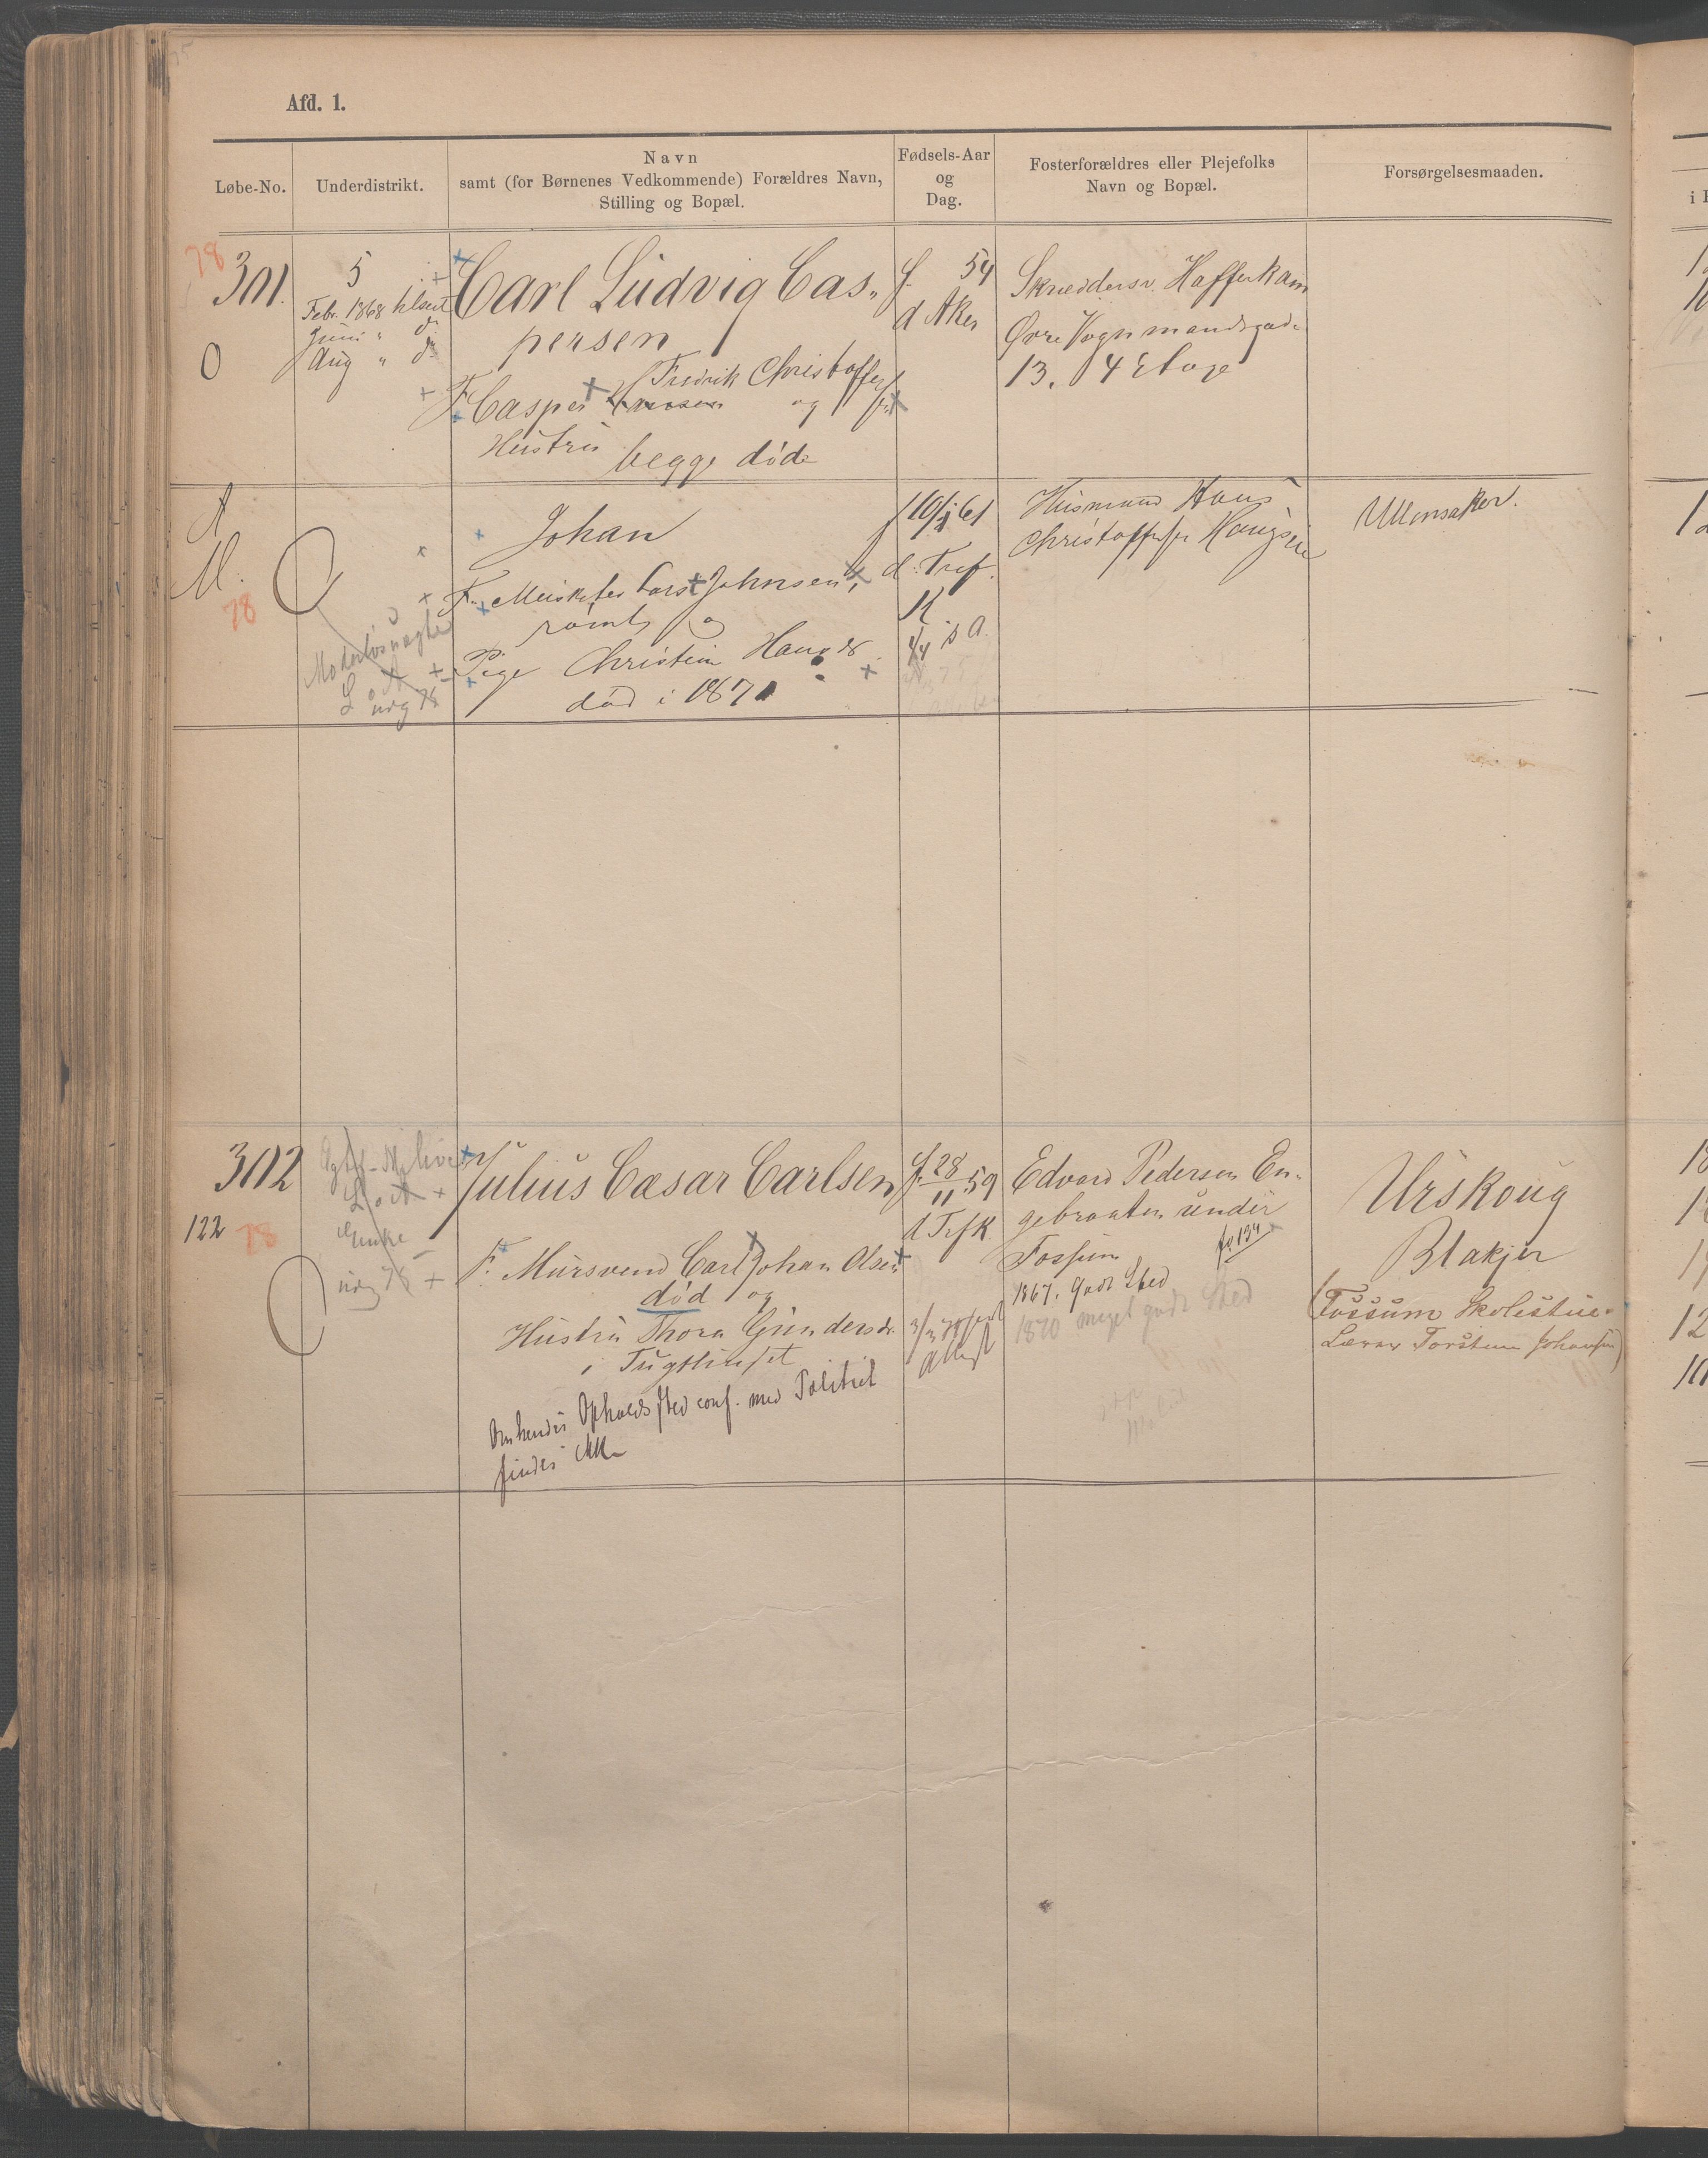 Afd. 1.
Løbe-No.
Underdistrikt.
Navn
samt (for Børnenes Vedkommende) Forældres Navn,
Stilling og Bopæl.
Fødsels-Aar
og
Dag.
Fosterforældres eller Plejefolks
Navn og Bopæl.
Forsørgelsesmaaden.
78
301.
O
5
Febr. 1868
Juni " do
Aug " do
Carl Ludvig Cas-
persen
Fredrik Christoffer
F Casper og
Hustru
begge døde
f. 54
d Aker
Skræddersv. Hafferkam
Øvre Vognmandsgade
13. 4 Etage
M.
78
Johan
F. Lars Johnsen,
rømt, og
Pige Christine
død i 1871
d. Tref.
K
Husmand Hans
Christoffersen
Ullensaker.
302
122
78
udg 78
Julius Cæsar Carlsen
F. Mursvend Carl Johan Olsen
død og
Hustru Thora Gundersdr.
i Tugthuset
Opholdssted conf. med Politiet
findes ikke
f. 28/11 59
d Trfk
Edvard Pedersen En-
gebraaten under
Fossum fo 134
1867. Godt Sted
1870 meget godt Sted
Urskoug
Blakjer
(Fossum Skolestue.
Lærer Torsten Johansen)